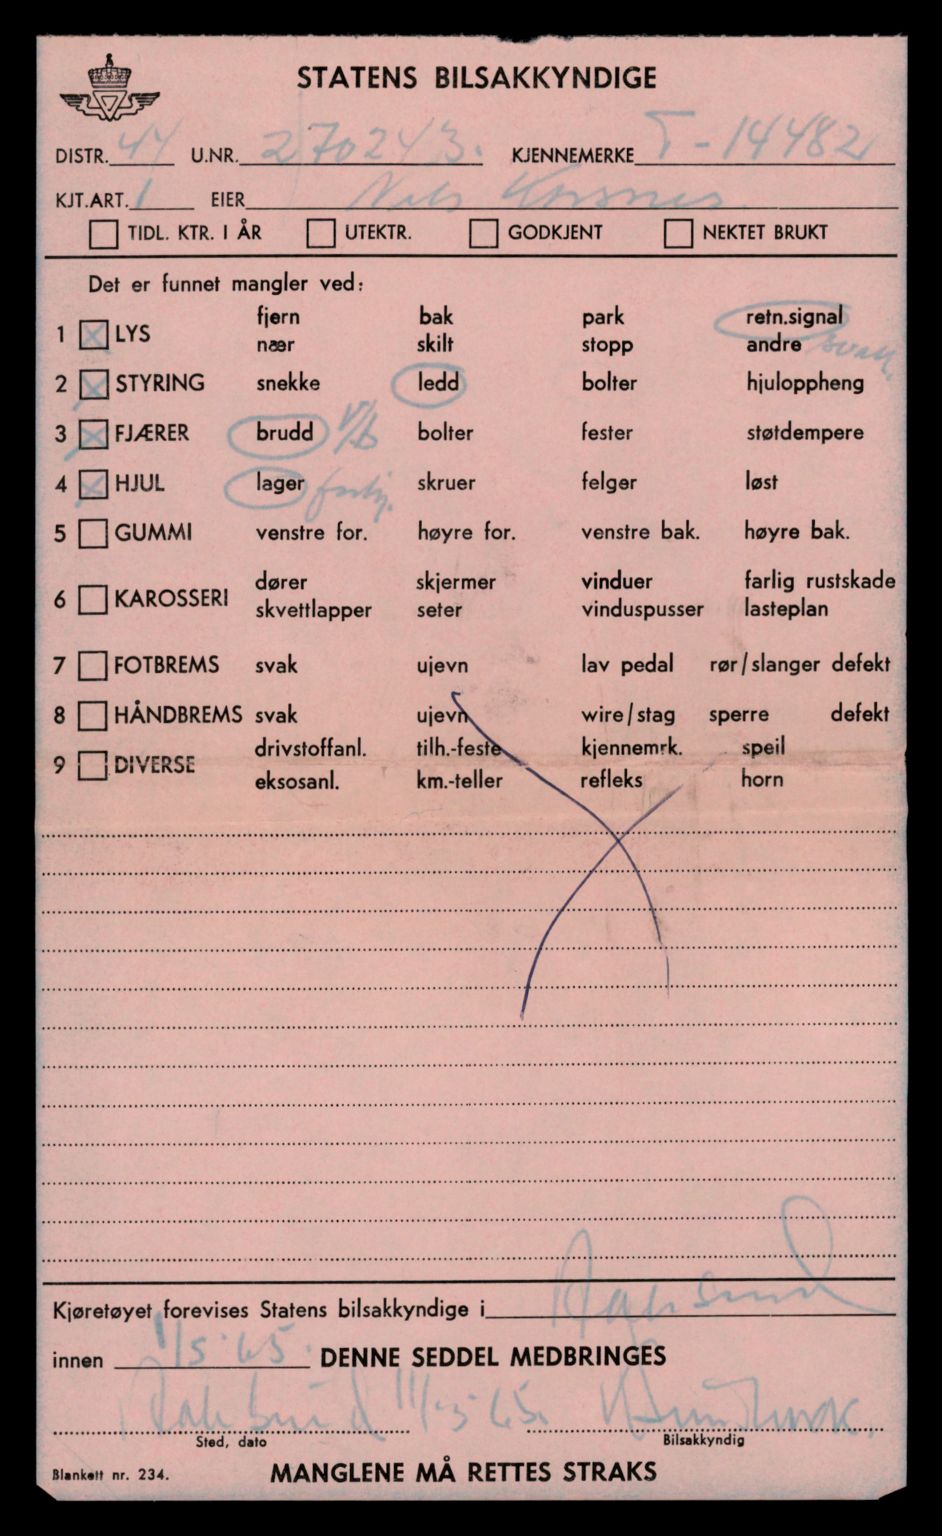 STATENS BILSAKKYNDIGE
DISTR. 44 U.NR. 270243. KJENNEMERKE T-14482
KJT.ART. 1 EIER Nils Korsnes
TIDL. KTR. I ÅR UTEKTR. GODKJENT NEKTET BRUKT
Det er funnet mangler ved:
1 LYS fjern bak park retn.signal
nær skilt stopp andre svak.
2 STYRING snekke ledd bolter hjuloppheng
3 FJÆRER brudd V/b bolter fester støtdempere
4 HJUL lager skruer felger løst
5 GUMMI venstre for. høyre for. venstre bak. høyre bak.
6 KAROSSERI dører skjermer vinduer farlig rustskade
skvettlapper seter vinduspusser lasteplan
7 FOTBREMS svak ujevn lav pedal rør/slanger defekt
8 HÅNDBREMS svak ujevn wire/stag sperre defekt
9 DIVERSE drivstoffanl. tilh.-feste kjennemrk. speil
eksosanl. km.-teller refleks horn
Kjøretøyet forevises Statens bilsakkyndige i
innen 1/5-65. DENNE SEDDEL MEDBRINGES
11/3-65.
Sted, dato Bilsakkyndig
Blankett nr. 234. MANGLENE MÅ RETTES STRAKS